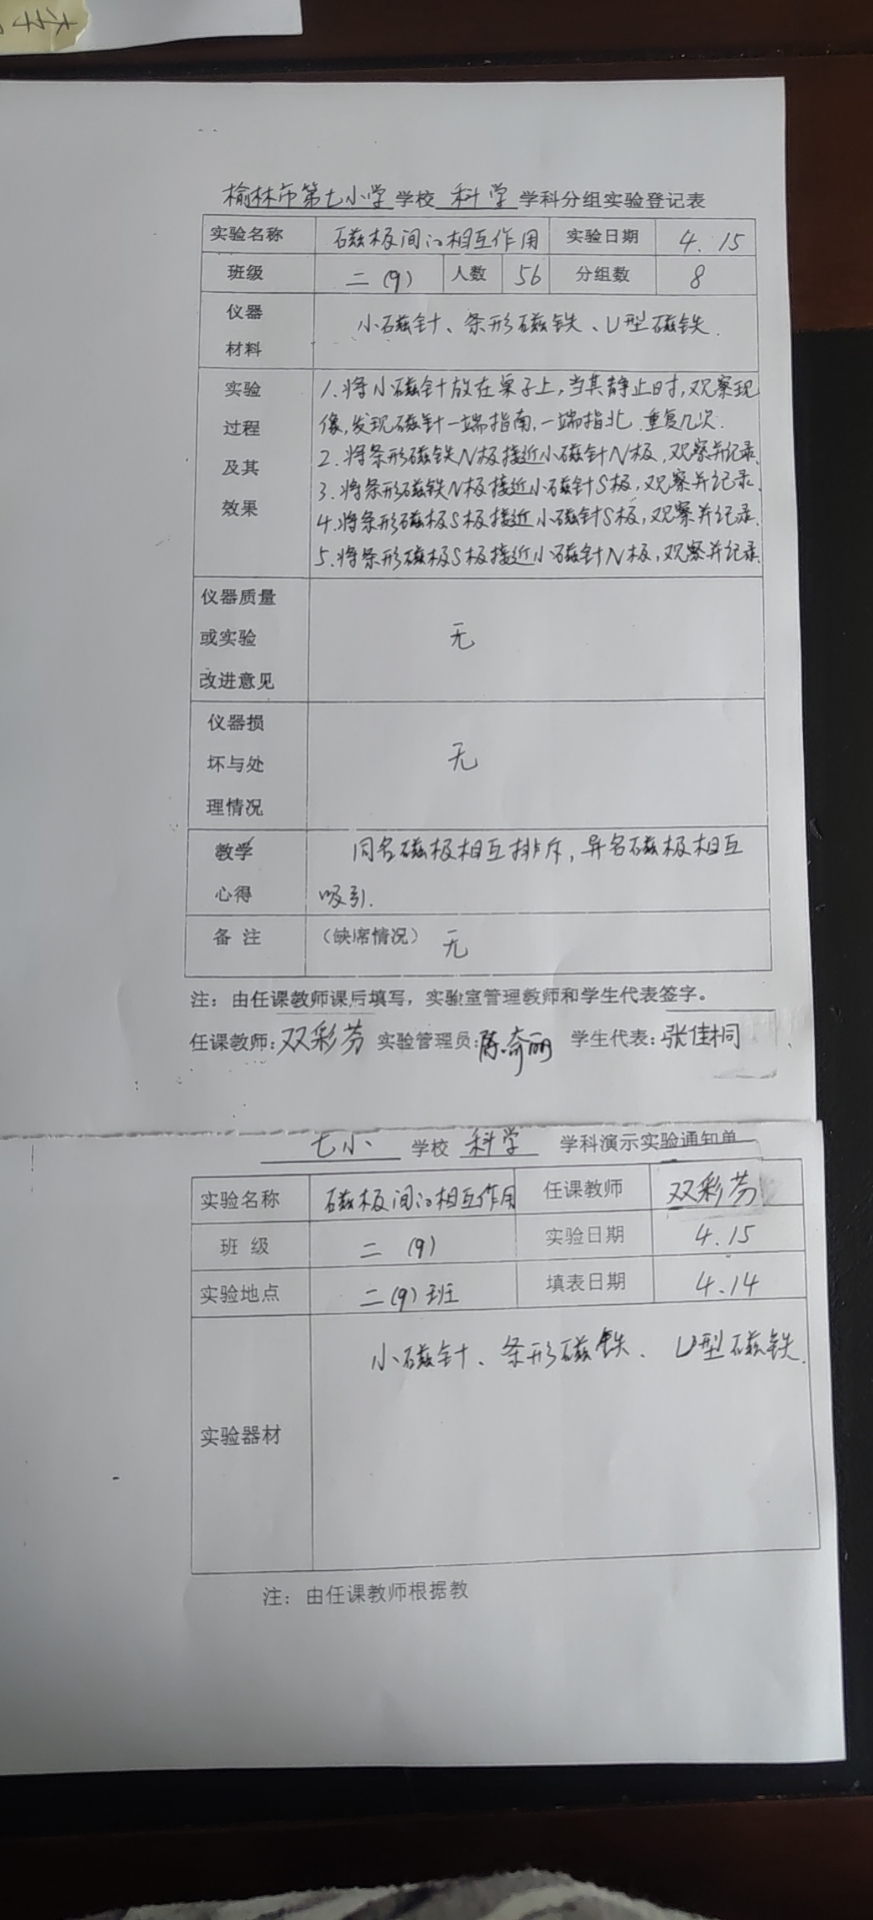 榆林市第七小学 学校 科学 学科分组实验登记表
实验名称 磁极间的相互作用 实验日期 4.15
班级 二(9) 人数 56 分组数 8
仪器材料 小磁针、条形磁铁、U型磁铁.
实验过程及其效果 1.将小磁针放在桌子上,当其静止时,观察现
像,发现磁针一端指南,一端指北.重复几次.
2.将条形磁铁N极接近小磁针N极,观察并记录.
3.将条形磁铁N极接近小磁针S极,观察并记录.
4.将条形磁极S极接近小磁针S极,观察并记录.
5.将条形磁极S极接近小磁针N极,观察并记录.
仪器质量或实验改进意见 无
仪器损坏与处理情况 无
教学心得 同名磁极相互排斥,异名磁极相互
吸引.
备注 (缺席情况) 无
注:由任课教师课后填写,实验室管理教师和学生代表签字。
任课教师:双彩芬 实验管理员:陈奇丽 学生代表:张佳桐
七小 学校 科学 学科演示实验通知单
实验名称 磁极间的相互作用 任课教师 双彩芬
班级 二(9) 实验日期 4.15
实验地点 二(9)班 填表日期 4.14
实验器材 小磁针、条形磁铁、U型磁铁.
注:由任课教师根据教